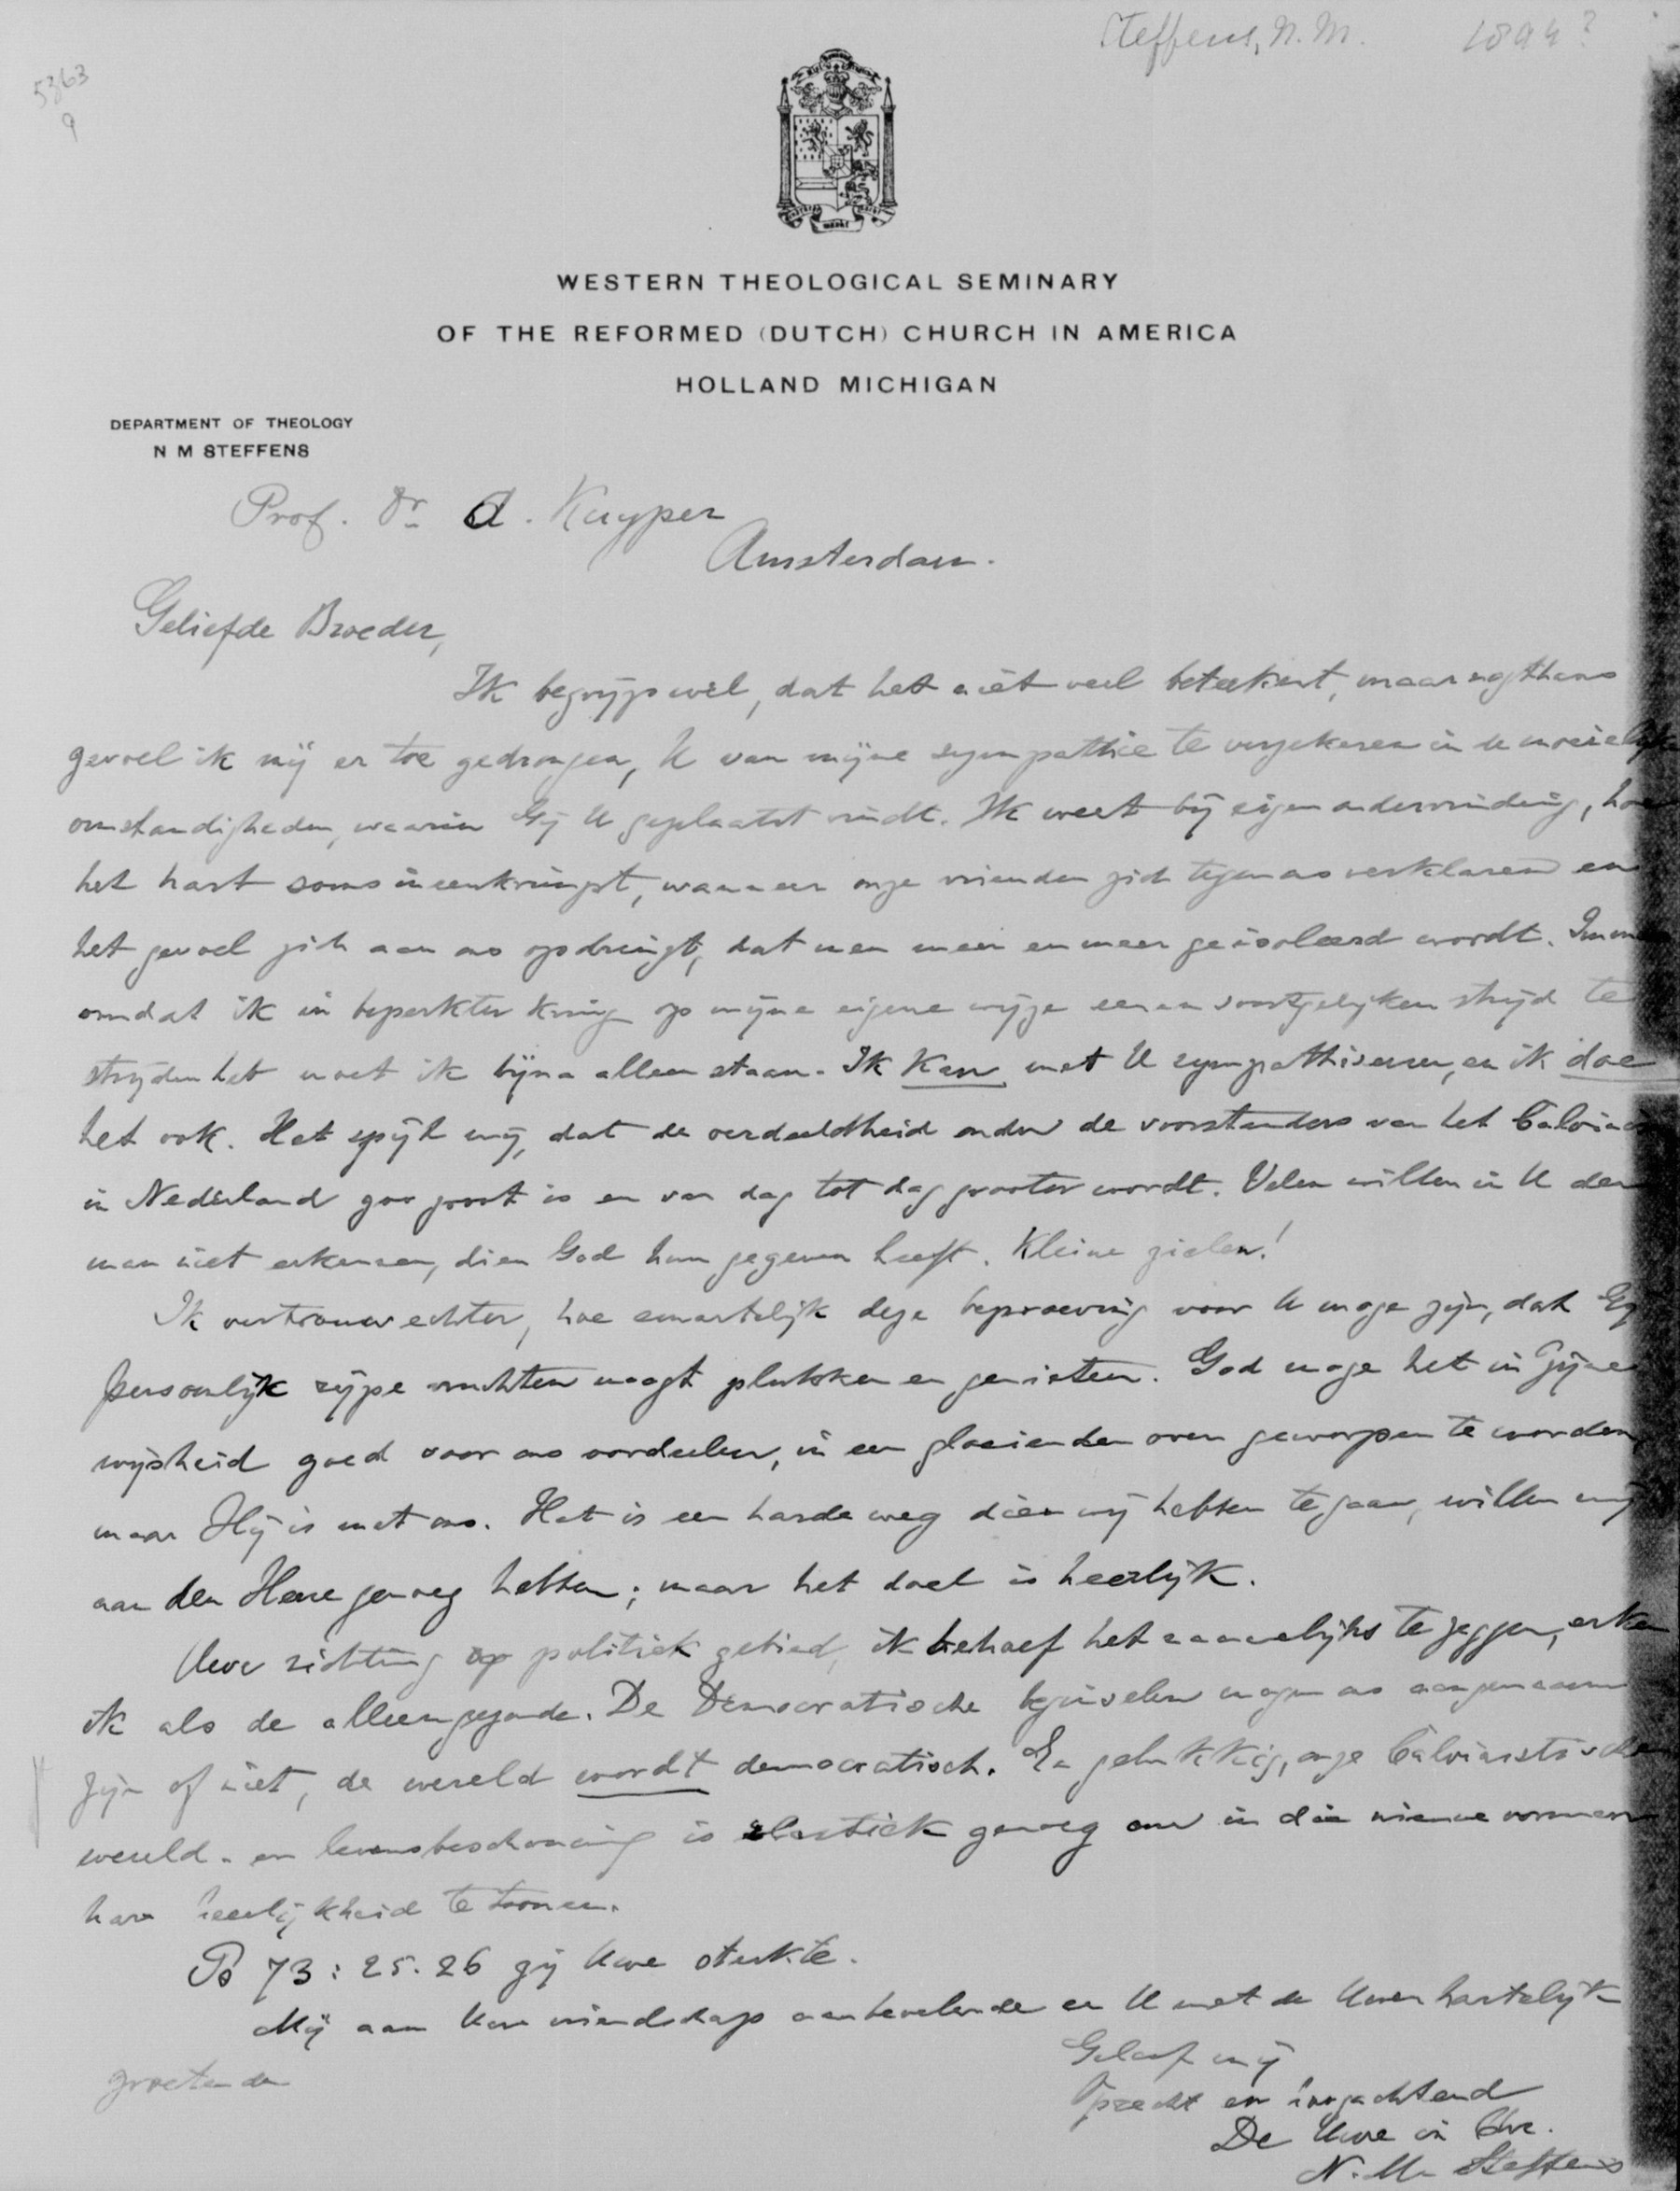 Steffens, N. M. 1894?
5363
9
WESTERN THEOLOGICAL SEMINARY
OF THE REFORMED (DUTCH) CHURCH IN AMERICA
HOLLAND MICHIGAN
DEPARTMENT OF THEOLOGY
N M STEFFENS
Prof. Dr A. Kuyper
Amsterdam.
Geliefde Broeder,
Ik begrijp wel, dat het niet veel beteekent, maar nogthans
gevoel ik mij er toe gedrongen, U van mijne sympathie te verzekeren in de moeielijke
omstandigheden, waarin Gij U geplaatst vindt. Ik weet bij eigen ondervinding, hoe
het hart soms ineenkrimpt, wanneer onze vrienden zich tegen ons verklaren en
het gevoel zich aan ons opdringt, dat men meer en meer geisoleerd wordt.
omdat ik in beperkter kring op mijne eigene wijze eenen soortgelijken strijd te
strijden heb moet ik bijna alleen staan. Ik kan met U sympathiseren, en ik doe
het ook. Het spijt mij, dat de verdeeldheid onder de voorstanders van het
in Nederland zoo groot is en van dag tot dag grooter wordt. Velen willen in U den
man niet erkennen, dien God hun gegeven heeft. Kleine zielen!
Ik vertrouw echter, hoe smartelijk deze beproeving voor U moge zijn, dat Gij
persoonlijk rijpe vruchten moogt plukken en genieten. God moge het in Zijne
wijsheid goed voor ons oordeelen, in een gloeienden oven geworpen te worden,
maar Hij is met ons. Het is een harde weg dien wij hebben te gaan, willen wij
aan den Heere genoeg hebben; maar het doel is heerlijk.
Uwe richting op politiek gebied, ik behoef het nauwelijks te zeggen, erken
ik als de alleen gezonde. De Democratische beginselen mogen ons aangenaam
zijn of niet, de wereld wordt democratisch. En gelukkig, onze Calvinistische
wereld- en levensbeschouwing is elastiek genoeg om in die nieuwe vormen
hare heerlijkheid te toonen.
Ps 73: 25. 26 zij Uwe sterkte.
Mij aan Uwe vriendschap aanbevelende en U met de Uwen hartelijk
groetende
Geloof mij
Oprecht en hoogachtend
De Uwe in Chr.
N. M. Steffens